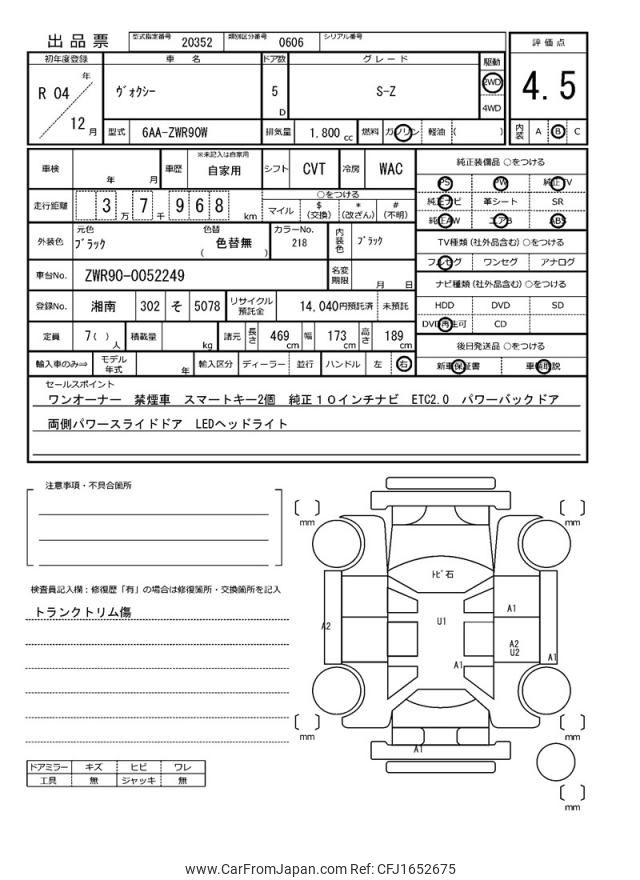 出品票 型式指定番号 20352 類別区分番号 0606 シリアル番号
評価点
4.5
内装 A B C
初年度登録 車名 ドア数 グレード 駆動
R 04 年 12 月
ヴォクシー 5 D S-Z 2WD 4WD
型式 6AA-ZWR90W 排気量 1,800 cc 燃料 ガソリン 軽油 ( )
車検 年 月 車歴 ※未記入は自家用 自家用 シフト CVT 冷房 WAC
走行距離 3 万 7 千 9 6 8 km
○をつける
マイル $ (交換) * (改ざん) # (不明)
外装色 元色 ブラック 色替 ( 色替無 ) カラーNo. 218 内装色 ブラック
車台No. ZWR90-0052249 名変期限 月 日
登録No. 湘南 302 そ 5078 リサイクル預託金 14,040円預託済 未預託
定員 7( ) 人 積載量 kg 諸元 長さ 469 cm 幅 173 cm 高さ 189 cm
輸入車のみ⇒ モデル年式 年 輸入区分 ディーラー 並行 ハンドル 左 右
純正装備品 ○をつける
PS PW 純正TV
純正ナビ 革シート SR
純正AW エアB ABS
TV種類 (社外品含む) ○をつける
フルセグ ワンセグ アナログ
ナビ種類 (社外品含む) ○をつける
HDD DVD SD
DVD再生可 CD
後日発送品 ○をつける
新車保証書 車輌取説
セールスポイント
ワンオーナー 禁煙車 スマートキー2個 純正10インチナビ ETC2.0 パワーバックドア
両側パワースライドドア LEDヘッドライト
注意事項・不具合箇所
検査員記入欄：修復歴「有」の場合は修復箇所・交換箇所を記入
トランクトリム傷
ドアミラー キズ ヒビ ワレ
工具 無 ジャッキ 無
mm
mm
トビ石
A2
U1
A1
A2
U2
A1
A1
mm
mm
A1
mm
www.CarFromJapan.com Ref: CFJ1652675